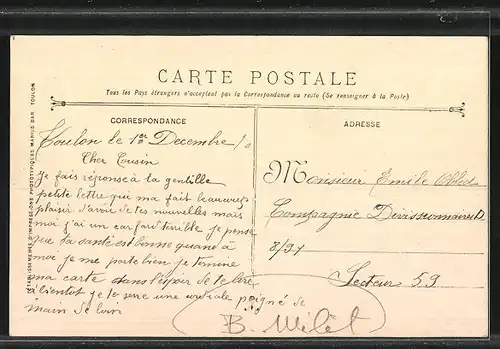 CARTE POSTALE
Tous les Pays étrangers n'acceptent pas la Correspondance au recto (Se renseigner à la Poste)
CORRESPONDANCE
Toulon le 1er Decembre
Cher Cousin
Je fais réponse à la gentille
petite lettre qui ma fait beaucoup
plaisir d'avoir de tes nouvelles mais
moi j'ai un cafard terrible je pense
que ta santé est bonne quand à
moi je me porte bien je termine
ma carte dans l'espoir de te lire
a bientot je te serre une cordiale poigné de
main de loin
B. Milet
ADRESSE
Monsieur Emile
Compagnie Divisionnaire
8/91
Secteur 59
ETABLISSEMENTS D'IMPRESSIONS PHOTOTYPIQUES MARIUS BAR TOULON